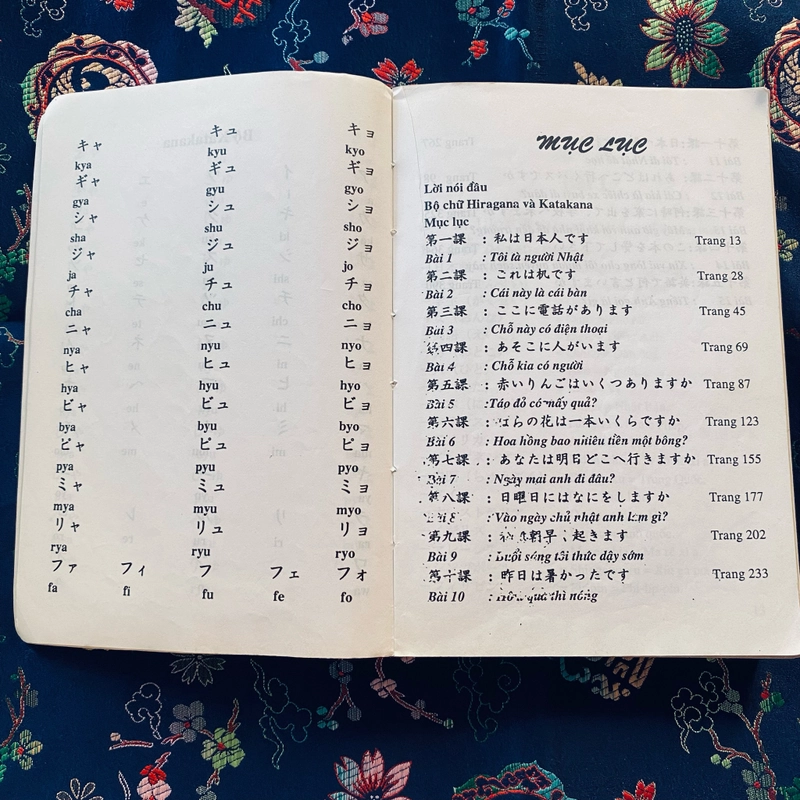 キャ キュ キョ
kya kyu kyo
ギャ ギュ ギョ
gya gyu gyo
シャ シュ ショ
sha shu sho
ジャ ジュ ジョ
ja ju jo
チャ チュ チョ
cha chu cho
ニャ ニュ ニョ
nya nyu nyo
ヒャ ヒュ ヒョ
hya hyu hyo
ビャ ビュ ビョ
bya byu byo
ピャ ピュ ピョ
pya pyu pyo
ミャ ミュ ミョ
mya myu myo
リャ リュ リョ
rya ryu ryo
ファ フィ フ フェ フォ
fa fi fu fe fo
MỤC LỤC
Lời nói đầu
Bộ chữ Hiragana và Katakana
Mục lục
第一課 : 私は日本人です Trang 13
Bài 1 : Tôi là người Nhật
第二課 : これは机です Trang 28
Bài 2 : Cái này là cái bàn
第三課 : ここに電話があります Trang 45
Bài 3 : Chỗ này có điện thoại
第四課 : あそこに人がいます Trang 69
Bài 4 : Chỗ kia có người
第五課 : 赤いりんごはいくつありますか Trang 87
Bài 5 : Táo đỏ có mấy quả?
第六課 : ばらの花は一本いくらですか Trang 123
Bài 6 : Hoa hồng bao nhiêu tiền một bông?
第七課 : あなたは明日どこへ行きますか Trang 155
Bài 7 : Ngày mai anh đi đâu?
第八課 : 日曜日にはなにをしますか Trang 177
Bài 8 : Vào ngày chủ nhật anh làm gì?
第九課 : 朝早く起きます Trang 202
Bài 9 : Buổi sáng tôi thức dậy sớm
第十課 : 昨日は暑かったです Trang 233
Bài 10 : Hôm qua thì nóng